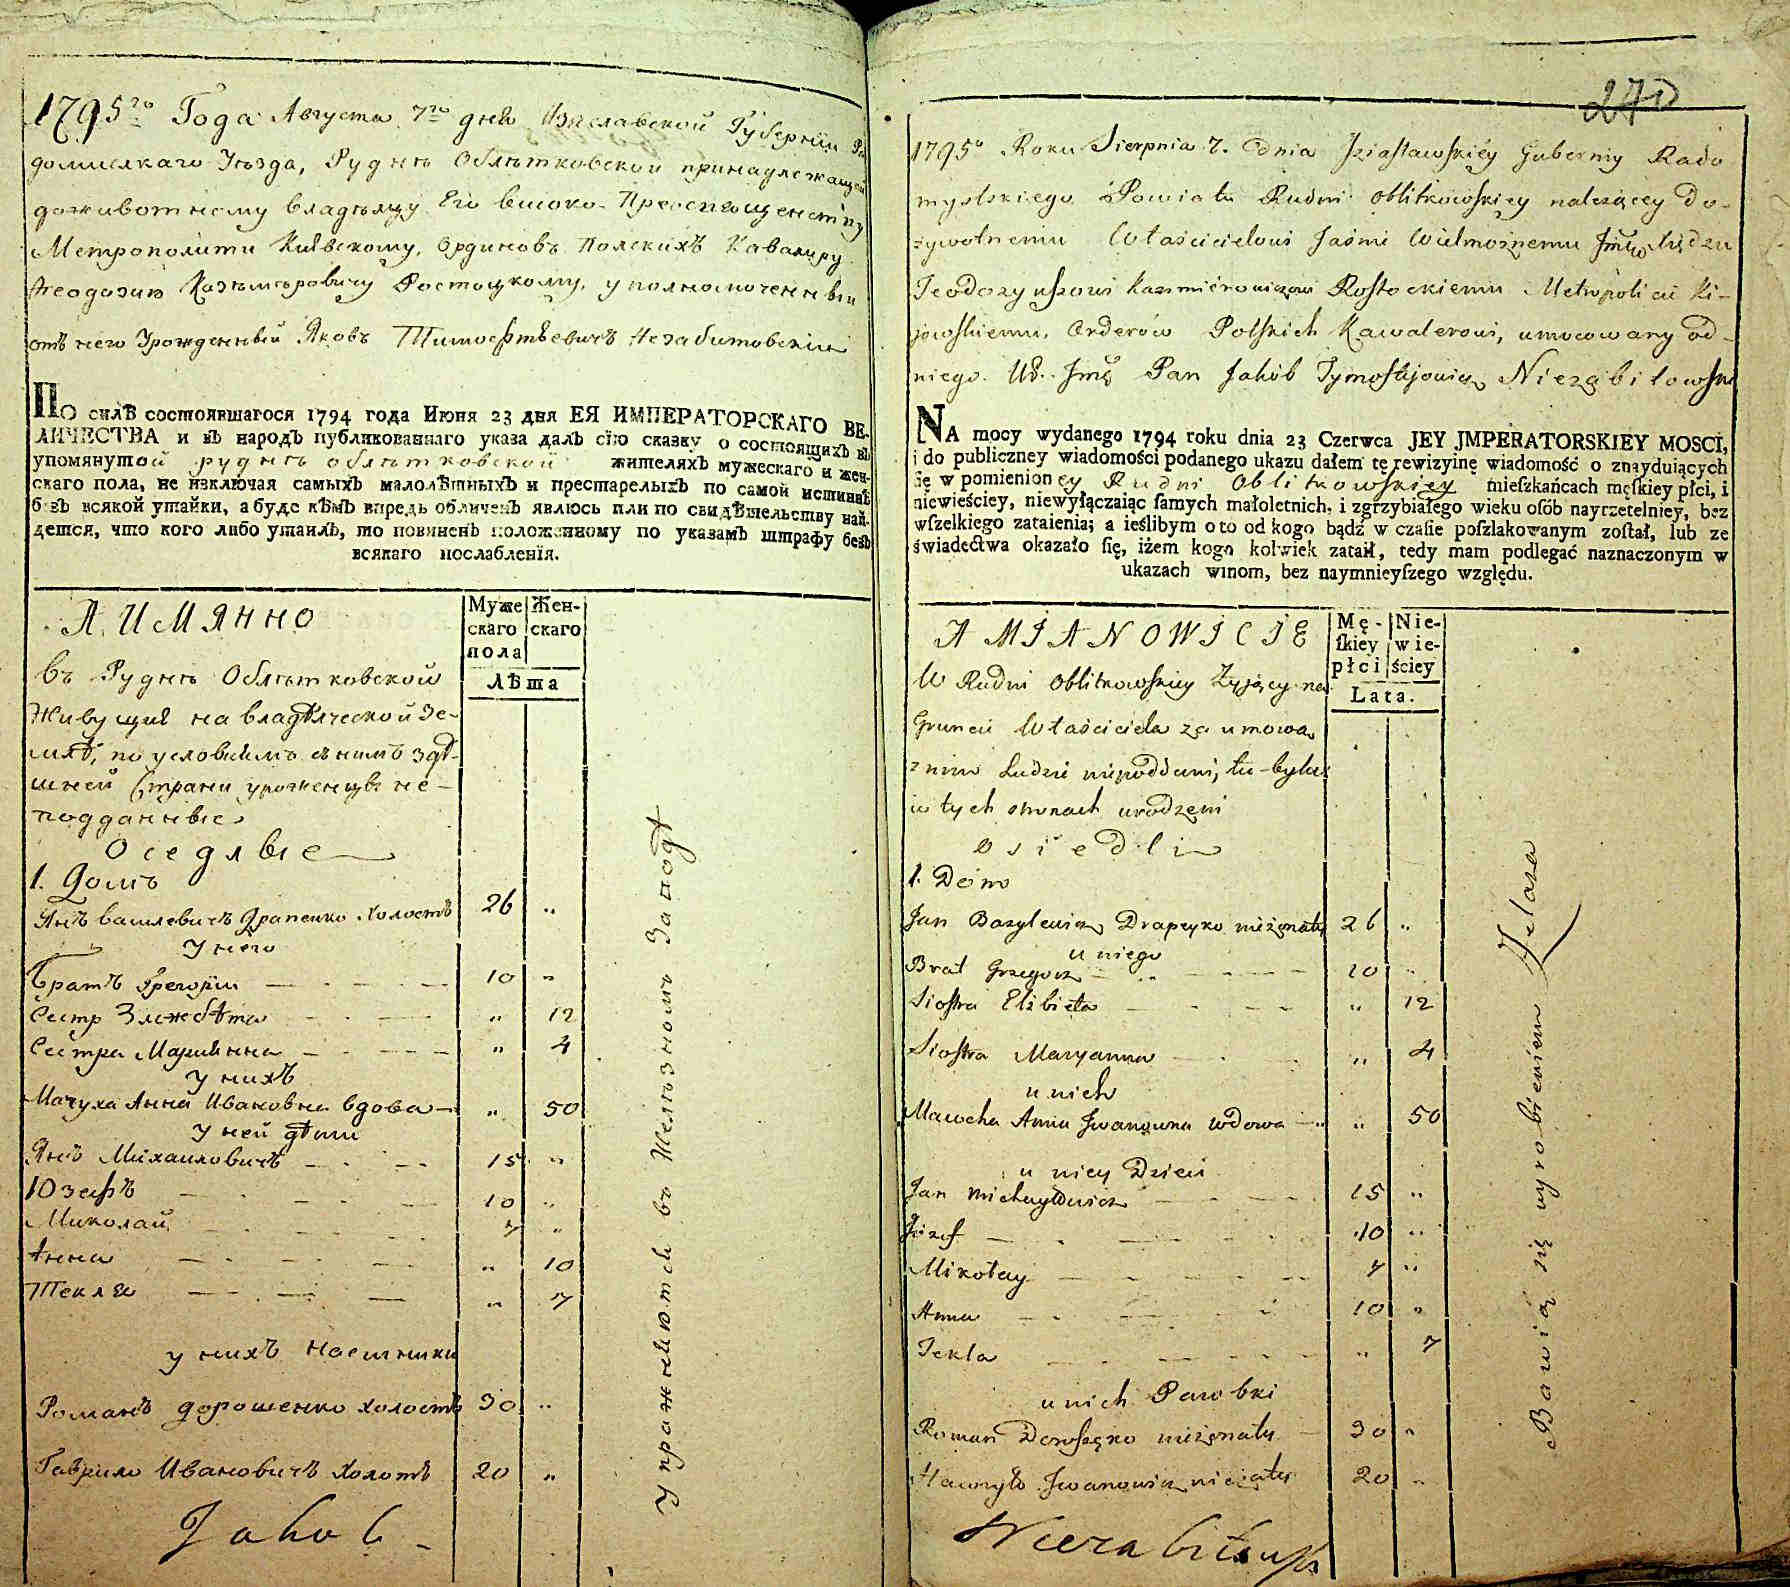 1795го Года Августа 7го дня Изяславской Губернїи Ра
домислкаго Уѣзда, Руднѣ Облѣтковской принадлежащей
доживотному владѣлцу Его високо Преосвященству
Метрополити Киевскому, Ординовъ Полскихъ Кавалиру
Феодозию Казѣмѣровичу Ростоцкому, уполномоченный
отъ него Урожденный Яковъ Тимофѣевичъ Незабитовский
По силѣ состоявшагося 1794 года Июня 23 дня ЕЯ ИМПЕРАТОРСКАГО ВЕ-
ЛИЧЕСТВА и въ народъ публикованнаго указа далъ сїю сказку о состоящихъ въ
упомянутой руднѣ облѣтковской жителяхъ мужескаго и жен-
скаго пола, не изключая самыхъ малолѣтныхъ и престарелыхъ по самой истиннѣ
безъ всякой утайки, а буде кѣмъ впредь обличенъ явлюсь или по свидѣтельству най-
дется, что кого либо утаилъ, то повиненъ положенному по указамъ штрафу безъ
всякаго послабленїя.
А ИМЯННО
Муже Жен-
скаго скаго
пола
Лѣта
въ Руднѣ Облѣтковской
Живущие на владѣлческой зе-
млѣ, по условиямъ съ нимъ здѣ-
шней Страни уроженцы не-
подданные
Оседлые
1. Домъ
Янъ василевичъ Драпенко холостъ 26 "
У него
Братъ Грегорий 10 "
Сестр Элжбѣта " 12
Сестра Марианна " 4
У нихъ
Мачуха Анна Ивановна вдова " 50
У ней дѣти
Янъ Михаиловичъ 15 "
Юзефъ 10 "
Миколай 7 "
Анна " 10
Текля " 7
у нихъ наемники
Романъ дорошенко холостъ 30 "
Гаврило Ивановичъ холостъ 20 "
Jakob
Упражняются въ Желѣзномъ Заводѣ
270
1795o Roku Sierpnia 7. Dnia Jziasławskiéy Guberniy Rado
mysłskiego Powiatu Rudni Oblitkowskiey należącey do-
żywotnemu Właścicielowi Jaśnie Wielmożnemu Jmć Xiędzu
Teodozyuszowi Kazimierowiczowi Rostockiemu Metropolicie Ki-
jowskiemu, Orderów Polskich Kawalerowi, umocowany od-
niego Ur. Jmć Pan Jakób Tymofijowicz Niezabitowski
NA mocy wydanego 1794 roku dnia 23 Czerwca JEY JMPERATORSKIEY MOSCI,
i do publiczney wiadomości podanego ukazu dałem tę rewizyinę wiadomość o znayduiących
się w pomienioney Rudni Oblitkowskiey mieſzkańcach męſkiey płci, i
niewieściey, niewyłączaiąc ſamych małoletnich, i zgrzybiałego wieku osób nayrzetelniey, bez
wſzelkiego zataienia; a ieślibym o to od kogo bądź w czaſie poſzlakowanym został, lub ze
świadectwa okazało ſię, iżem kogo kolwiek zataił, tedy mam podlegać naznaczonym w
ukazach winom, bez naymnieyſzego względu.
A MIANOWICIE
Mę- Nie-
ſkiey wie-
płci ściey
Lata.
W Rudni Oblitkowskiey Żyjący na
Gruncie Właściciela za umową
z nim Ludzie niepoddani, tu-bylcy
w tych stronach urodzeni
osiedli
1. Dóm
Jan Bazylewicz Drapeyko nieżonaty 26 "
u niego
Brat Grzegorz 10 "
Siostra Elżbieta " 12
Siostra Maryanna " 4
u nich
Macocha Anna Jwanowna wdowa " 50
u niey Dzieci
Jan Michayłowicz 15 "
Józef 10 "
Mikołay 7 "
Anna 10 "
Tekla " 7
u nich Parobki
Roman Doroszęko nieżonaty 30 "
Hawryło Jwanowicz nieżaty 20 "
Niezabitowski
Bawią się wyrobieniem Żelaza